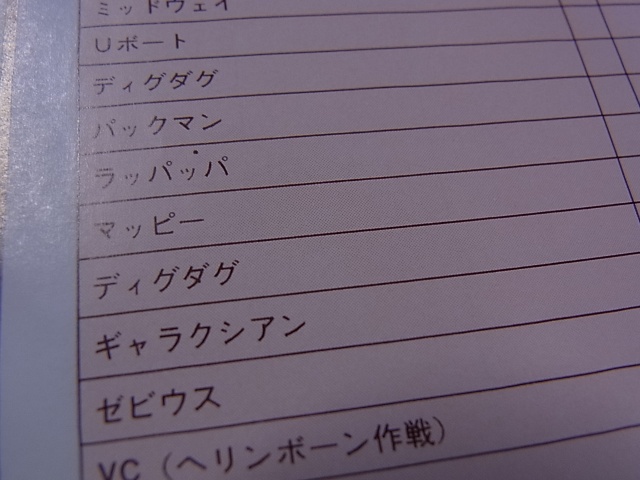 ミッドウェイ
Uボート
ディグダグ
パックマン
ラッパッパ
マッピー
ディグダグ
ギャラクシアン
ゼビウス
VC（ヘリンボーン作戦）